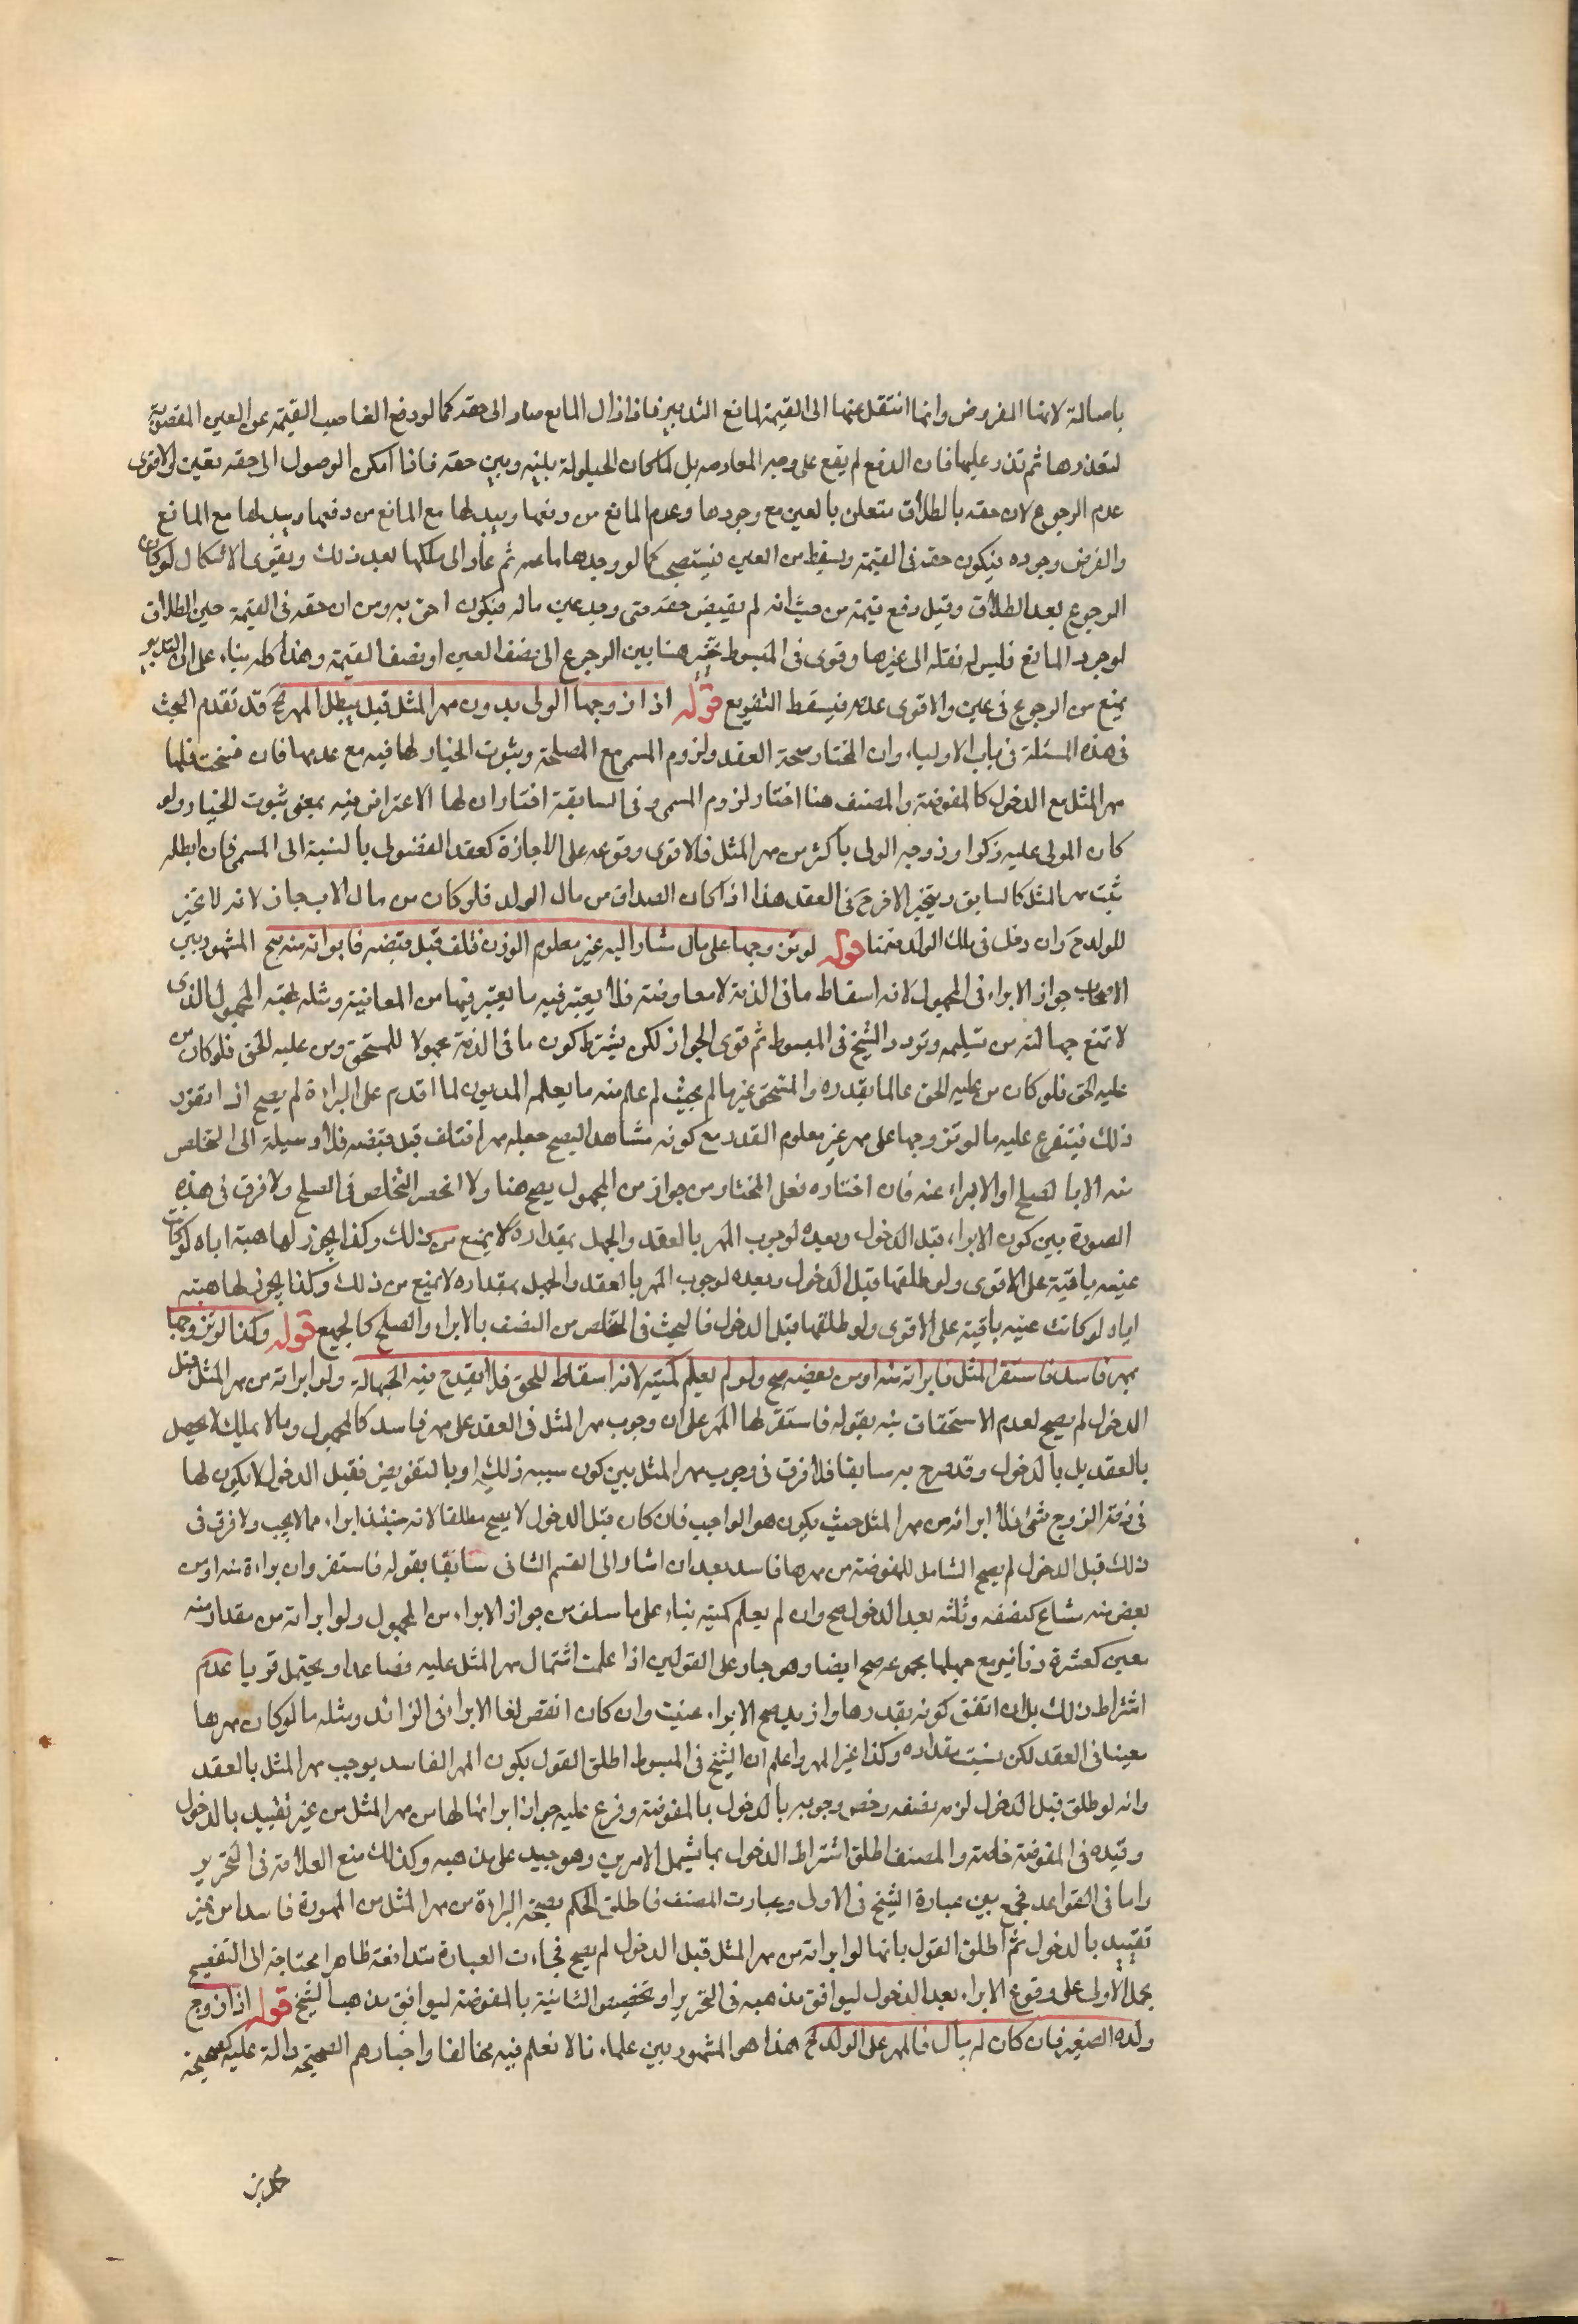 باصالة لانها المفروض وانما انتقل عنها الى القيمة لمانع التدبير فاذا زال المانع صار الى حقه كما لو دفع الغاصب القيمة عن العين المغصوبة
لتعذرها ثم قدر عليها فان الدفع لم يقع على وجه المعاوضه بل لمكان الحيلولة بينه وبين حقه فاذا امكن الوصول الى حقه تعين والاقوى
عدم الرجوع لان حقه بالطلاق متعلق بالعين مع وجودها وعدم المانع من دفعها وببدلها مع المانع من دفعها وببدلها مع المانع
والفرض وجوده فيكون حقه في القيمة ويسقط من العين فيستصحب كما لو وجدها ثم عاد الى ملكها بعد ذلك ويقوى الاشكال لو كان
الرجوع بعد الطلاق وقبل دفع قيمة من حيث انه لم يقبض حقه متى وجد عين ماله فيكون احق به ومن ان حقه في القيمة حين الطلاق
لوجود المانع فليس له نقله الى غيرها وقوى في المبسوط تخيره هنا بين الرجوع الى نصف العين او نصف القيمة وهذا كله بناء على ان التدبير
يمنع من الرجوع في عين والاقوى عدمه فيسقط التفريع قوله اذا زوجها الولى بدون مهر المثل قيل يبطل المهر الخ قد تقدم البحث
في هذه المسئلة في باب الاولياء وان المختار صحة العقد ولزوم المسمى مع المصلحة وثبوت الخيار لها فيه مع عدمها فان فسخت فلها
مهر المثل مع الدخول كالمفوضة والمصنف هنا اختار لزوم المسمى وفي السابقة اختار ان لها الاعتراض فيه بمعنى ثبوت الخيار ولو
كان المولى عليه ذكرا وزوجه الولى باكثر من مهر المثل فالاقوى وقوعه على الاجازة كعقد الفضولى بالنسبة الى المسمى فان ابطله
ثبت مهر المثل كالسابق ويتخير الاخر ح في العقد هذا اذا كان الصداق من مال الولد فلو كان من مال الاب جاز لانه لا تخير
للولد ح وان دخل في ملك الولد ضمنا قوله لو تزوجها على مال مشار اليه غير معلوم الوزن فتلف قبل قبضه فابراته منه صح المشهور بين
الاصحاب جواز الابراء في المجهول لانه اسقاط ما في الذمة لا معاوضة فلا يعتبر فيه ما يعتبر فيها من المعاينة ومثله هبة المجهول الذى
لا تمنع جهالته من تسليمه وتردد الشيخ في المبسوط ثم قوى الجواز لكن يشترط كون ما في الذمة مجهولا للمستحق ومن عليه الحق فلو كان من
عليه الحق فلو كان من عليه الحق عالما بقدره والمستحق غير عالم بحيث لم علم منه ما يعلمه المديون لما اقدم على البراءة لم يصح اذا تقرر
ذلك فيتفرع عليه ما لو تزوجها على مهر غير معلوم القدر مع كونه مشاهدا ليصح جعله مهرا فتلف قبل قبضه فلا وسيلة الى التخلص
منه الا بالصلح او الابراء عنه فان اختاره فعلى المختار من جوازه من المجهول يصح هنا ولا انحصر التخلص في الصلح ولا فرق في هذه
الصورة بين كون الابراء قبل الدخول وبعده لوجوب المهر بالعقد والجهل بمقداره لا يمنع من ذلك وكذا يجوز لها هبة اياه لو كانت
عينه باقية على الاقوى ولو طلقها قبل الدخول وبعده لوجوب المهر بالعقد والجهل بمقداره لا يمنع من ذلك وكذا يجوز لها هبته
اياه لو كانت عينه باقية على الاقوى ولو طلقها قبل الدخول فالبحث في التخلص من النصف بالابراء والصلح كالجميع قوله وكذا لو تزوجها
بمهر فاسد فاستقر المثل فابراته منه او من بعضه صح ولو لم يعلم كميته لانه اسقاط للحق فلا يقدح فيه الجهالة ولو ابراته من مهر المثل قبل
الدخول لم يصح لعدم الاستحقاق نبه بقوله فاستقر لها المهر على ان وجوب مهر المثل في العقد على مهر فاسد كالمجهول وما لا يملك لا يحصل
بالعقد بل بالدخول وقد صرح به سابقا فلا فرق في وجوب مهر المثل بين كون سببه ذلك او بالتفويض فقبل الدخول لا يكون لها
في ذمة الزوج شئ فلا ابرائه من مهر المثل حيث يكون هو الواجب فان كان قبل الدخول لا يصح مطلقا لانه حينئذ ابراء مما لا يجب ولا فرق في
ذلك قبل الدخول لم يصح الشامل للمفوضة من مهرها فاسد بعد ان اشار الى القسم الثانى سابقا بقوله فاستقر وان براءة منه او من
بعض منه مشاع كنصفه وثلثه بعد الدخول صح وان لم يعلم كميته بناء على ما سلف من جواز الابراء من المجهول ولو ابراته من مقدار منه
معين كعشرة دنانير مع جهلها بمجموعه صح ايضا وهو جار على القولين اذا علمت اشتمال مهر المثل عليه فصاعدا ويحتمل قويا عدم
اشتراط ذلك بل ان اتفق كونه بقدرها وازيد صح الابراء عينت وان كان انقص لغا الابراء في الزائد ومثله ما لو كان مهرها
معينا في العقد لكن نسيت مقداره وكذا غير المهر واعلم ان الشيخ في المبسوط اطلق القول بكون المهر الفاسد يوجب مهر المثل بالعقد
وانه لو طلق قبل الدخول لزمه نصفه وخص وجوبه بالدخول بالمفوضة وفرع عليه جواز ابرائها لها من مهر المثل من غير تقييد بالدخول
وقيده في المفوضة خاصة والمصنف اطلق اشتراط الدخول بما يشمل الامرين وهو جيد على مذهبه وكذلك منع العلامة في التحرير
واما في القواعد فجمع بين عبارة الشيخ في الاولى وعبارت المصنف فاطلق الحكم بصحة البراءة من مهر المثل من الممهورة فاسدا من غير
تقييد بالدخول ثم اطلق القول بانها لو ابراته من مهر المثل قبل الدخول لم يصح فجاءت العبارة متدافعة ظاهرا محتاجة الى التنقيح
بحمل الاولى على وقوع الابراء بعد الدخول ليوافق مذهبه في التحرير او تخصيص الثانية بالمفوضة ليوافق مذهب الشيخ قوله اذا زوج
ولده الصغير فان كان له مال فالمهر على الولد الخ هذا هو المشهور بين علمائنا لا نعلم فيه مخالفا واخبارهم الصحيحة دالة عليه كصحيحة
محمد بن